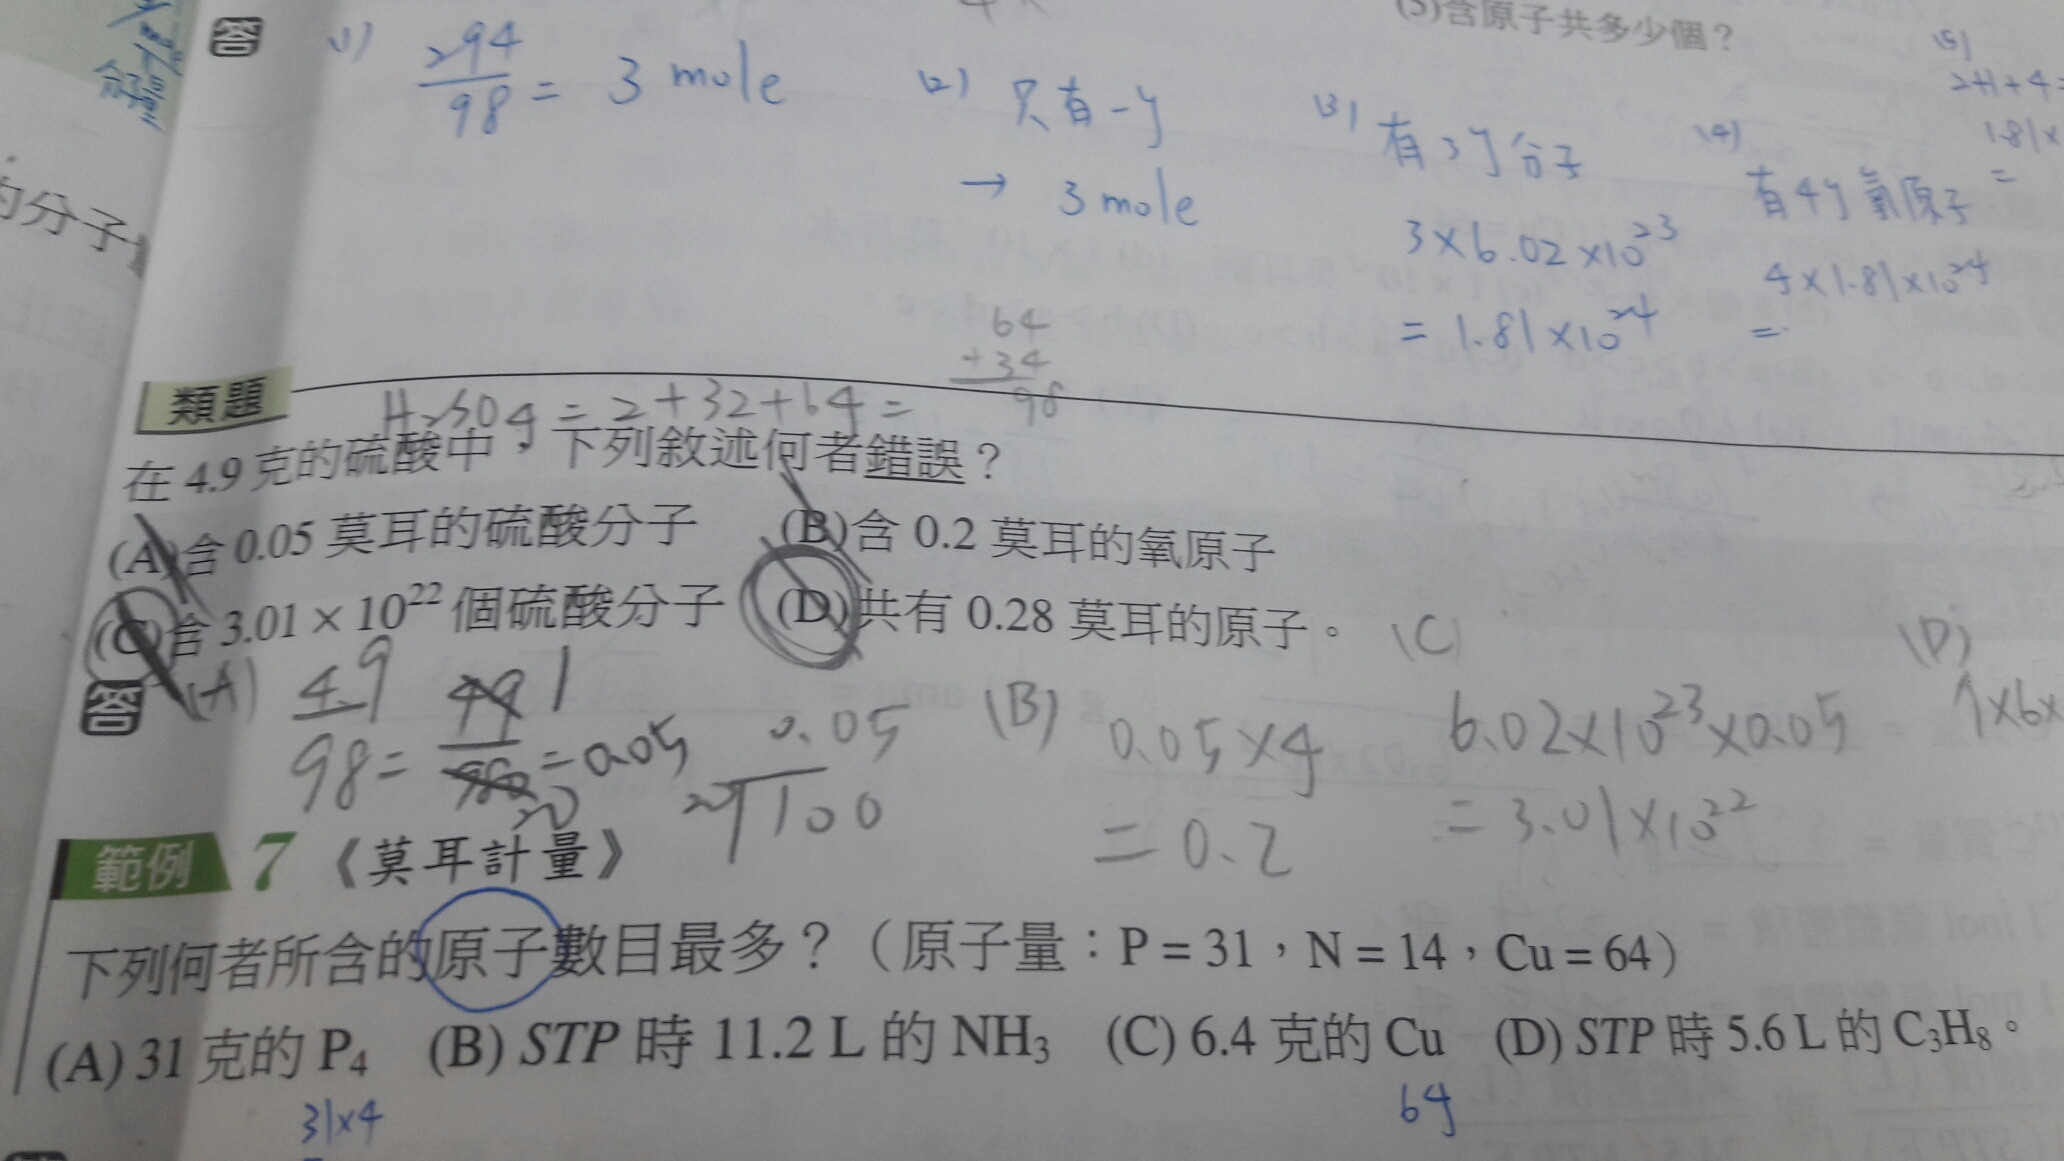 (5)含原子共多少個？
答
(1) 294/98 = 3 mole
(2) 只有一個
→ 3 mole
(3) 有3個分子
3×6.02×10²³
= 1.81×10²⁴
(4) 有4個氧原子
4×1.81×10²⁴
=
(5)
2H+4
1.81×
=
的分子量
64
+34
98
類題
H₂SO₄ = 2+32+64 =
在 4.9 克的硫酸中，下列敘述何者錯誤？
(A)含 0.05 莫耳的硫酸分子 (B)含 0.2 莫耳的氧原子
(C)含 3.01 × 10²² 個硫酸分子 (D)共有 0.28 莫耳的原子。
答
(A) 4.9/98 = 49/980 = 0.05
1
20
0.05
20 100
(B) 0.05×4
= 0.2
(C)
6.02×10²³×0.05
= 3.01×10²²
(D)
範例 7 《莫耳計量》
下列何者所含的原子數目最多？（原子量：P = 31，N = 14，Cu = 64）
(A) 31 克的 P₄ (B) STP 時 11.2 L 的 NH₃ (C) 6.4 克的 Cu (D) STP 時 5.6 L 的 C₃H₈。
31×4
64